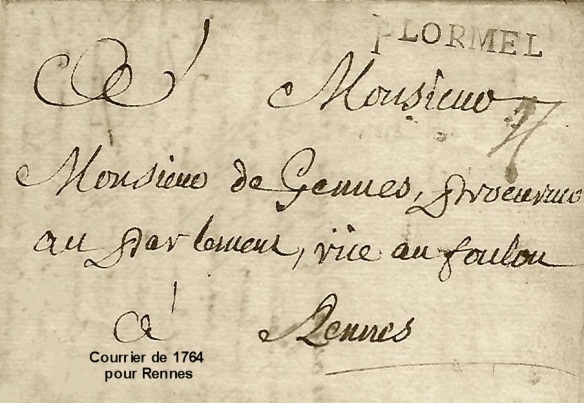 PLORMEL
A Monsieur
Monsieur de Gennes, procureur
au parlement, rüe au foulon
a Rennes
Courrier de 1764
pour Rennes